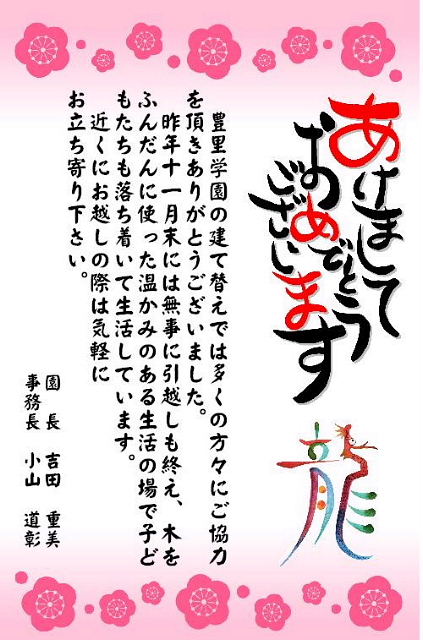 あけまして
おめでとう
ございます
龍
豊里学園の建て替えでは多くの方々にご協力
を頂きありがとうございました。
昨年十一月末には無事に引越しも終え、木を
ふんだんに使った温かみのある生活の場で子ど
もたちも落ち着いて生活しています。
近くにお越しの際は気軽に
お立ち寄り下さい。
園長 吉田 重美
事務長 小山 道彰